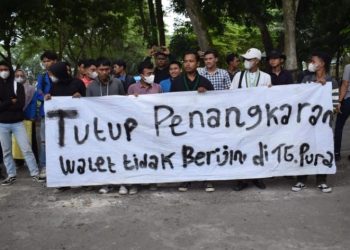 Tutup Penangkaran
walet tidak Berijin di TG. Pura